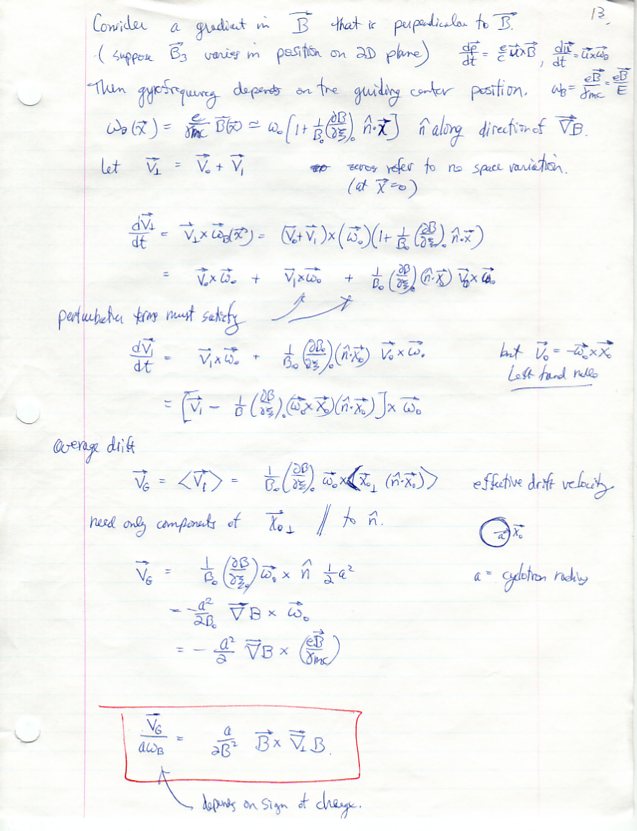 13.
Consider a gradient in $\vec{B}$ that is perpendicular to $\vec{B}$.
(suppose $\vec{B}_3$ varies in position on 2D plane) $\frac{d\vec{p}}{dt} = \frac{e}{c}\vec{u}\times\vec{B}$, $\frac{d\vec{u}}{dt} = \vec{u}\times\vec{\omega}_B$
Then gyrofrequency depends on the guiding center position. $\omega_B = \frac{e\vec{B}}{\gamma mc} = \frac{e\vec{B}}{E}$
$\omega_B(\vec{x}) = \frac{e}{\gamma mc}\vec{B}(\vec{x}) \simeq \omega_0\left[1 + \frac{1}{B_0}\left(\frac{\partial B}{\partial \xi}\right)_0 \hat{n}\cdot\vec{x}\right]$ $\hat{n}$ along direction of $\vec{\nabla}B$.
Let $\vec{V}_\perp = \vec{V}_0 + \vec{V}_1$ zeros refer to no space variation.
(at $\vec{x}=0$)
$\frac{d\vec{V}_\perp}{dt} = \vec{V}_\perp\times\vec{\omega}_B(\vec{x}) = (\vec{V}_0+\vec{V}_1)\times(\vec{\omega}_0)\left(1+\frac{1}{B_0}\left(\frac{\partial B}{\partial \xi}\right)_0 \hat{n}\cdot\vec{x}\right)$
$= \vec{V}_0\times\vec{\omega}_0 + \vec{V}_1\times\vec{\omega}_0 + \frac{1}{B_0}\left(\frac{\partial B}{\partial \xi}\right)_0(\hat{n}\cdot\vec{x}_0)\vec{V}_0\times\vec{\omega}_0$
perturbation terms must satisfy
$\frac{d\vec{V}_1}{dt} = \vec{V}_1\times\vec{\omega}_0 + \frac{1}{B_0}\left(\frac{\partial B_0}{\partial \xi}\right)_0(\hat{n}\cdot\vec{x}_0)\vec{V}_0\times\omega_0$ but $\vec{V}_0 = -\vec{\omega}_0\times\vec{x}_0$
Left hand rule
$= \left[\vec{V}_1 - \frac{1}{B}\left(\frac{\partial B}{\partial \xi}\right)_0(\vec{\omega}_0\times\vec{x}_0)(\hat{n}\cdot\vec{x}_0)\right]\times\vec{\omega}_0$
average drift
$\vec{V}_G = \langle\vec{V}_1\rangle = \frac{1}{B_0}\left(\frac{\partial B}{\partial \xi}\right)_0 \vec{\omega}_0\times\langle\vec{x}_{0\perp}(\hat{n}\cdot\vec{x}_0)\rangle$ effective drift velocity
need only components of $\vec{x}_{0\perp}$ // to $\hat{n}$.
a $\vec{x}_0$
$\vec{V}_G = \frac{1}{B_0}\left(\frac{\partial B}{\partial \xi}\right)_0\vec{\omega}_0\times\hat{n}\,\frac{1}{2}a^2$ a = cyclotron radius
$= -\frac{a^2}{2B_0}\vec{\nabla}B\times\vec{\omega}_0$
$= -\frac{a^2}{2}\vec{\nabla}B\times\left(\frac{e\vec{B}}{\gamma mc}\right)$
$\frac{\vec{V}_G}{a\omega_B} = \frac{a}{2B^2}\vec{B}\times\vec{\nabla}_\perp B$.
depends on sign of charge.